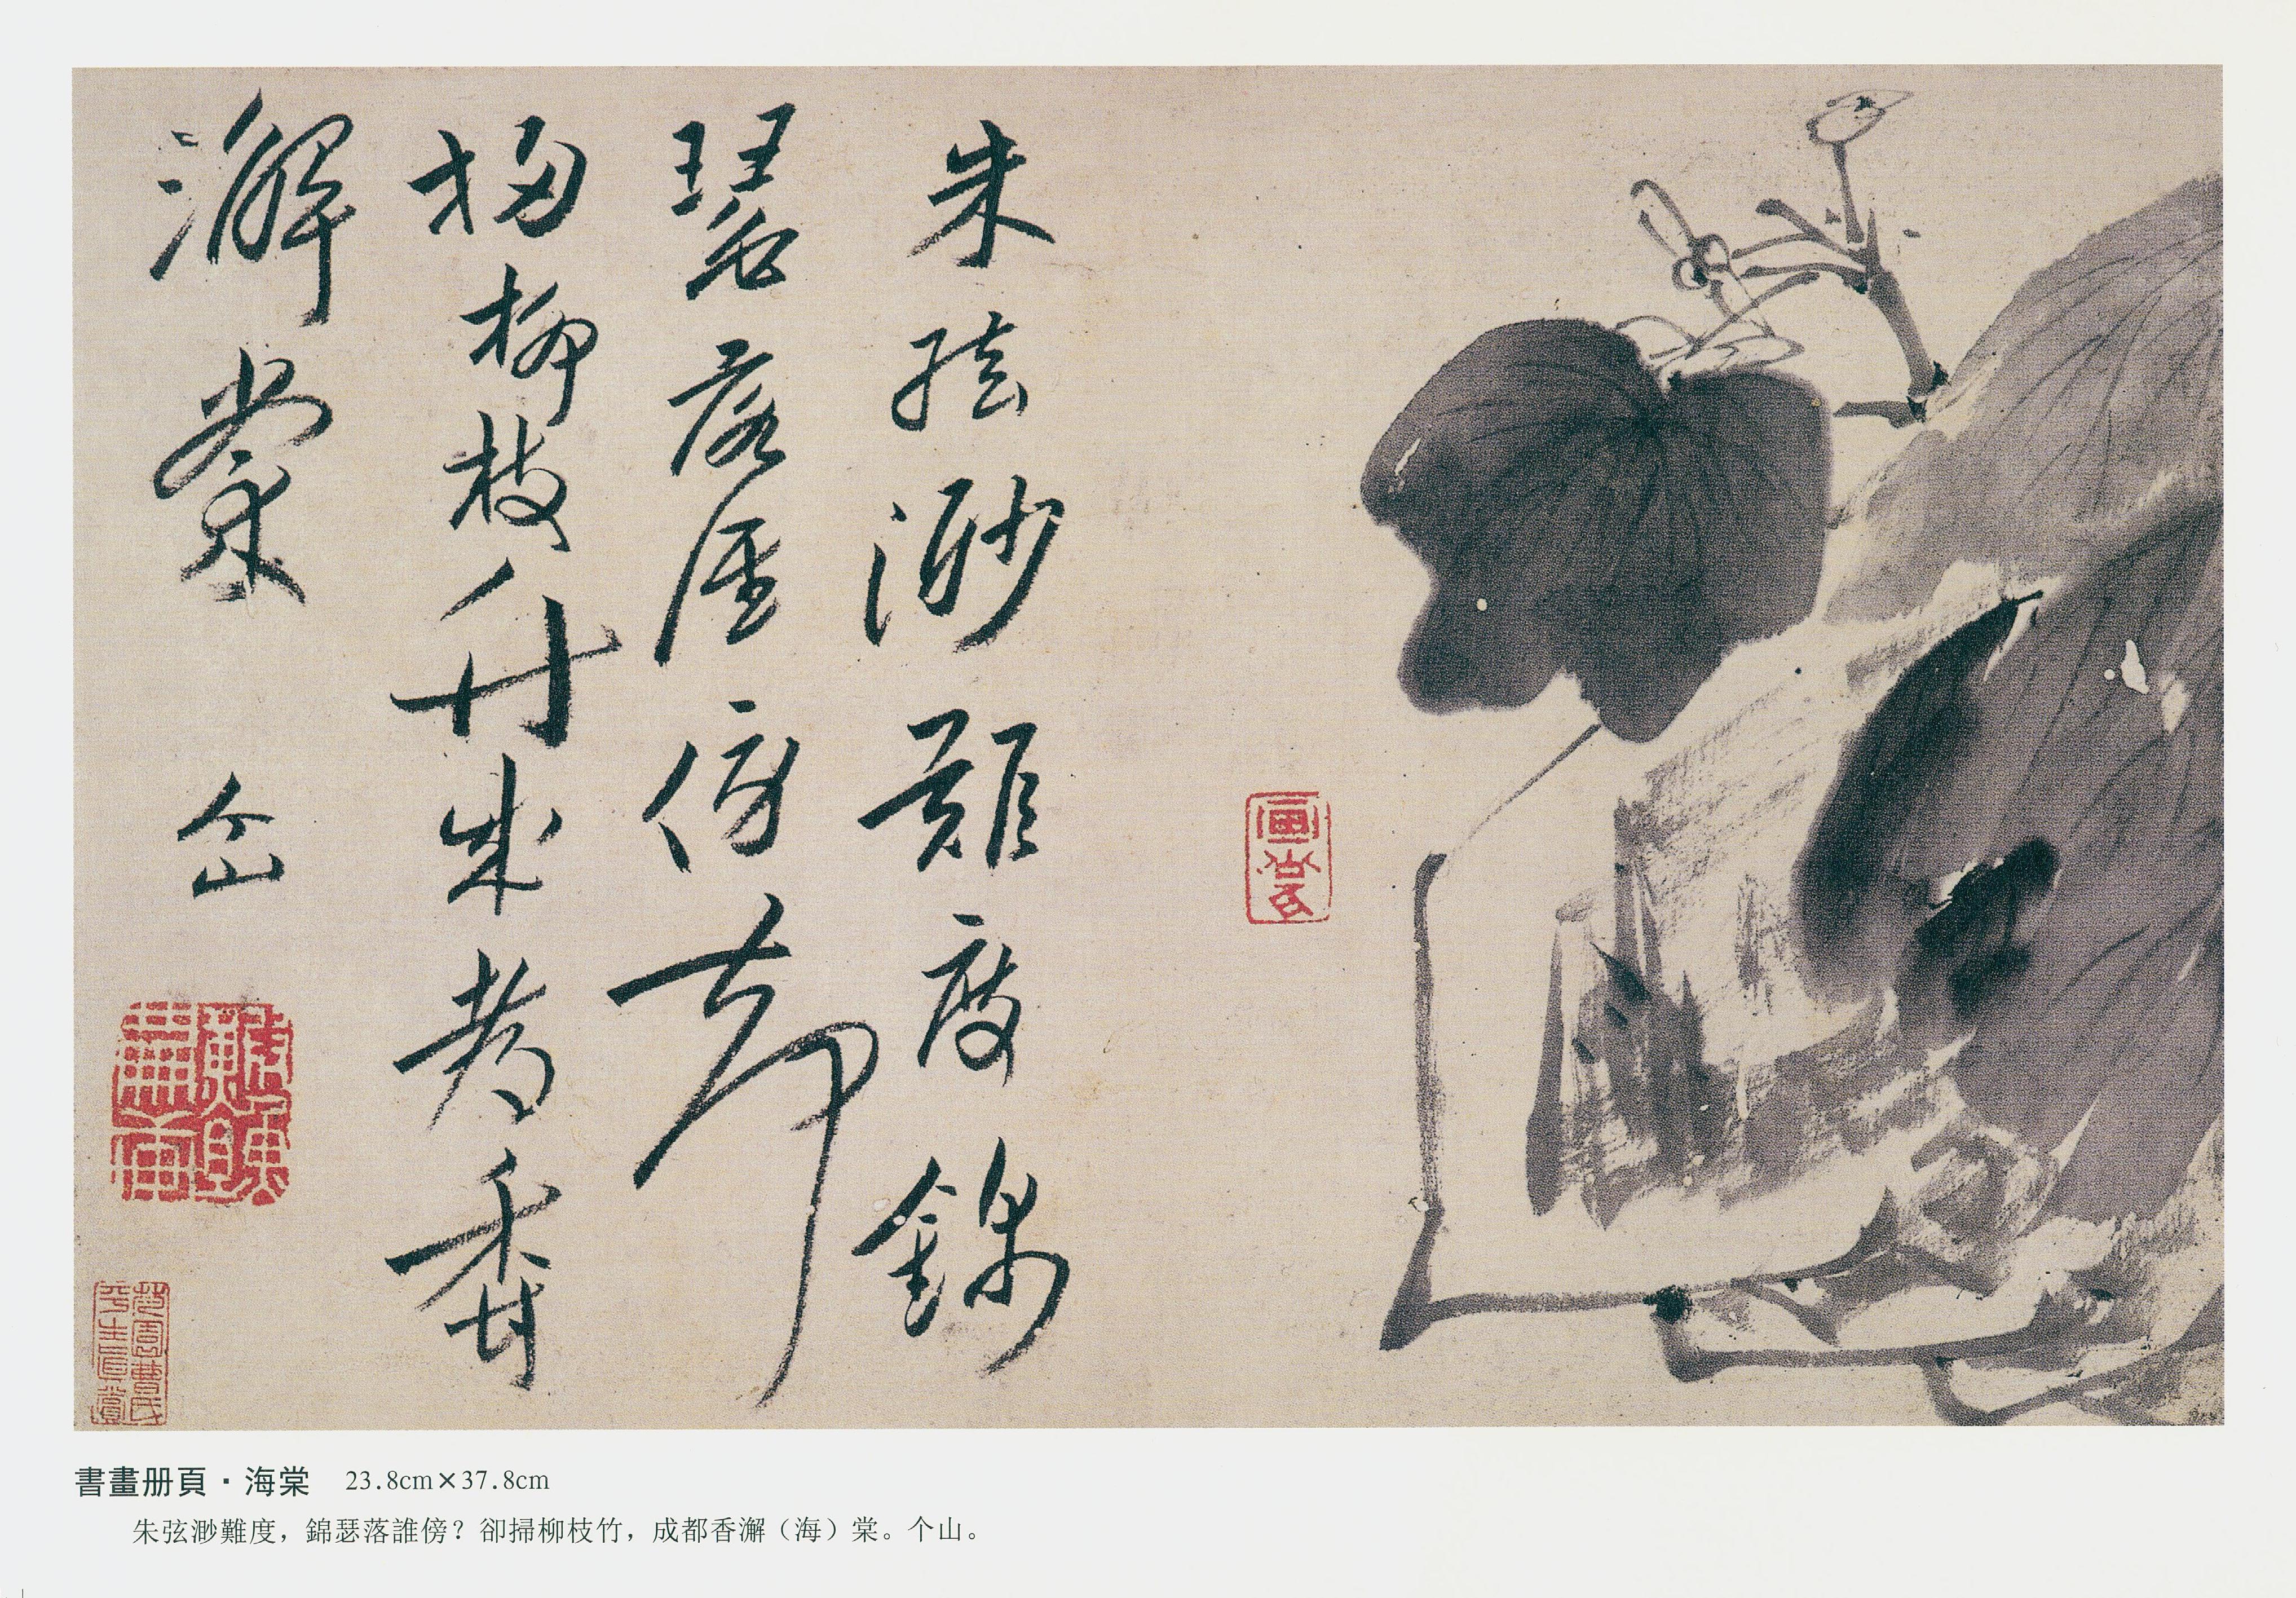 朱弦渺難度錦
瑟落誰傍卻
掃柳枝竹成都香
澥棠
个山
書畫册頁·海棠 23.8cm×37.8cm
朱弦渺難度，錦瑟落誰傍？卻掃柳枝竹，成都香澥（海）棠。个山。